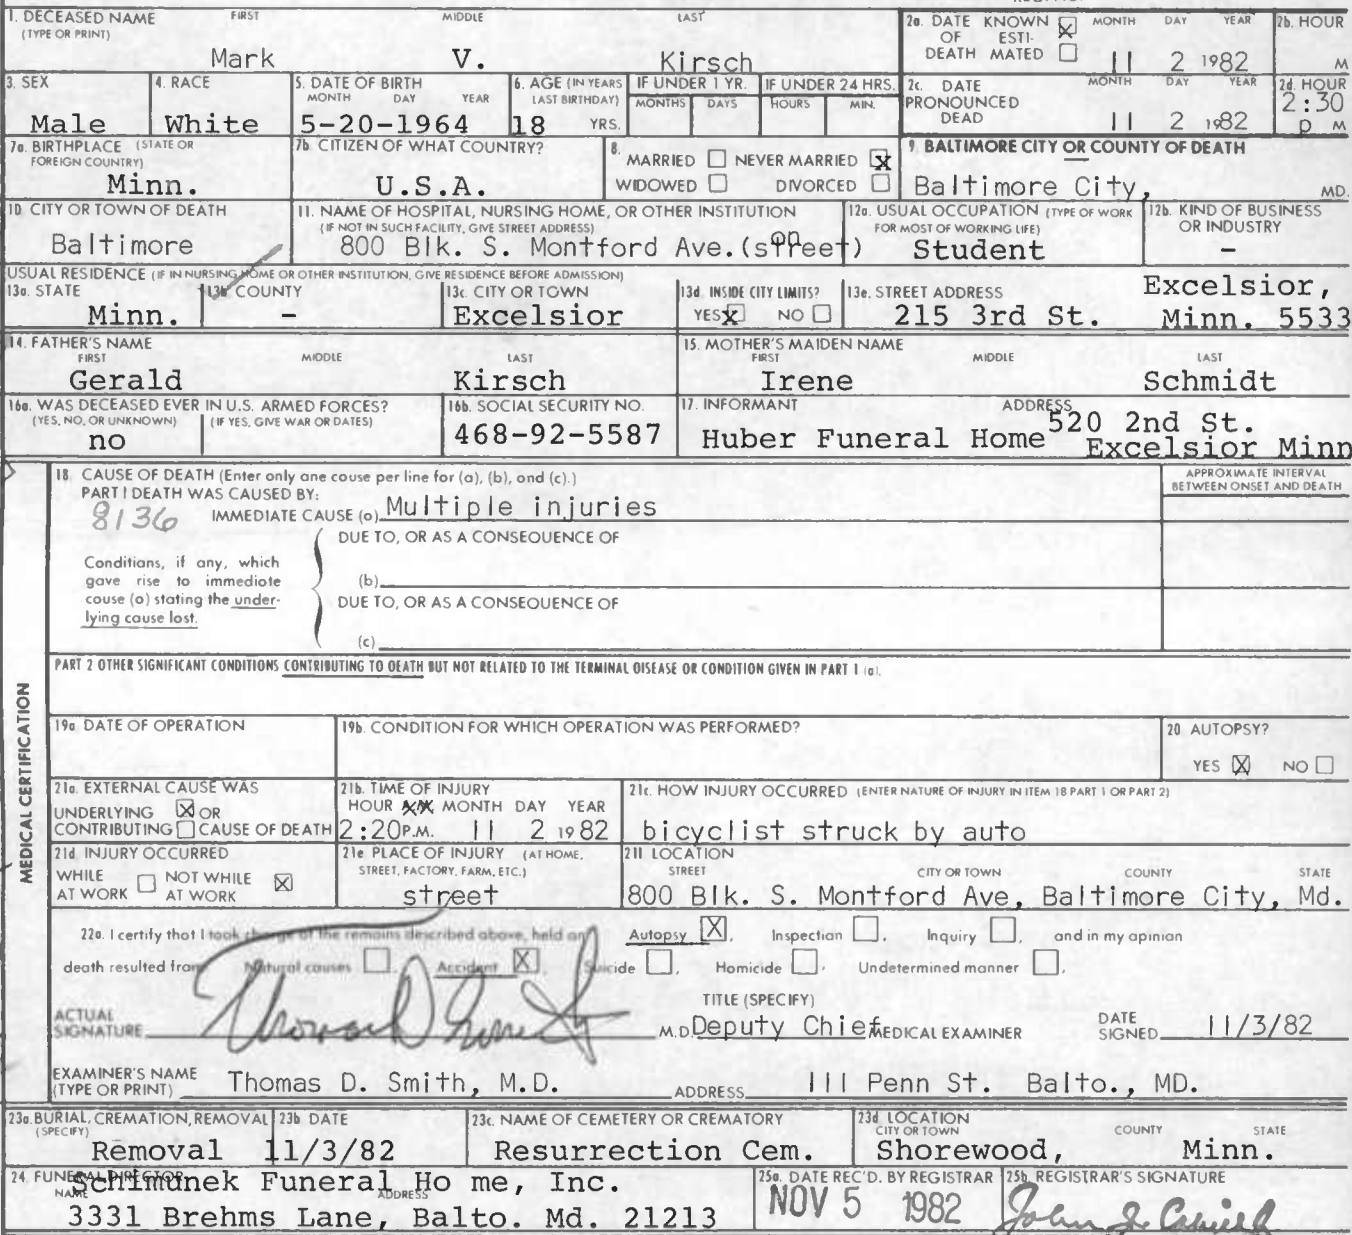 1. DECEASED NAME FIRST MIDDLE LAST
(TYPE OR PRINT)
Mark V. Kirsch
2a. DATE KNOWN ☒ MONTH DAY YEAR
OF ESTI-
DEATH MATED ☐ 11 2 1982
2b. HOUR
M
3. SEX
Male
4. RACE
White
5. DATE OF BIRTH
MONTH DAY YEAR
5-20-1964
6. AGE (IN YEARS
LAST BIRTHDAY)
18 YRS.
IF UNDER 1 YR.
MONTHS DAYS
IF UNDER 24 HRS.
HOURS MIN.
2c. DATE MONTH DAY YEAR
PRONOUNCED
DEAD 11 2 1982
2d. HOUR
2:30
P M
7a. BIRTHPLACE (STATE OR
FOREIGN COUNTRY)
Minn.
7b. CITIZEN OF WHAT COUNTRY?
U.S.A.
8.
MARRIED ☐ NEVER MARRIED ☒
WIDOWED ☐ DIVORCED ☐
9. BALTIMORE CITY OR COUNTY OF DEATH
Baltimore City, MD.
10. CITY OR TOWN OF DEATH
Baltimore
11. NAME OF HOSPITAL, NURSING HOME, OR OTHER INSTITUTION
(IF NOT IN SUCH FACILITY, GIVE STREET ADDRESS)
on
800 Blk. S. Montford Ave.(street)
12a. USUAL OCCUPATION (TYPE OF WORK
FOR MOST OF WORKING LIFE)
Student
12b. KIND OF BUSINESS
OR INDUSTRY
-
USUAL RESIDENCE (IF IN NURSING HOME OR OTHER INSTITUTION, GIVE RESIDENCE BEFORE ADMISSION)
13a. STATE
Minn.
13b. COUNTY
-
13c. CITY OR TOWN
Excelsior
13d. INSIDE CITY LIMITS?
YES ☒ NO ☐
13e. STREET ADDRESS Excelsior,
215 3rd St. Minn. 5533
14. FATHER'S NAME
FIRST MIDDLE LAST
Gerald Kirsch
15. MOTHER'S MAIDEN NAME
FIRST MIDDLE LAST
Irene Schmidt
16a. WAS DECEASED EVER IN U.S. ARMED FORCES?
(YES, NO, OR UNKNOWN) (IF YES, GIVE WAR OR DATES)
no
16b. SOCIAL SECURITY NO.
468-92-5587
17. INFORMANT ADDRESS
Huber Funeral Home 520 2nd St.
Excelsior Minn
18. CAUSE OF DEATH (Enter only one cause per line for (a), (b), and (c).)
APPROXIMATE INTERVAL
BETWEEN ONSET AND DEATH
PART I DEATH WAS CAUSED BY:
8136
IMMEDIATE CAUSE (a) Multiple injuries
DUE TO, OR AS A CONSEQUENCE OF
Conditions, if any, which
gave rise to immediate
cause (a) stating the under-
lying cause last.
(b)
DUE TO, OR AS A CONSEQUENCE OF
(c)
PART 2 OTHER SIGNIFICANT CONDITIONS CONTRIBUTING TO DEATH BUT NOT RELATED TO THE TERMINAL DISEASE OR CONDITION GIVEN IN PART 1 (a).
MEDICAL CERTIFICATION
19a. DATE OF OPERATION
19b. CONDITION FOR WHICH OPERATION WAS PERFORMED?
20 AUTOPSY?
YES ☒ NO ☐
21a. EXTERNAL CAUSE WAS
UNDERLYING ☒ OR
CONTRIBUTING ☐ CAUSE OF DEATH
21b. TIME OF INJURY
HOUR MONTH DAY YEAR
2:20 P.M. 11 2 1982
21c. HOW INJURY OCCURRED (ENTER NATURE OF INJURY IN ITEM 18 PART 1 OR PART 2)
bicyclist struck by auto
21d. INJURY OCCURRED
WHILE ☐ NOT WHILE ☒
AT WORK AT WORK
21e. PLACE OF INJURY (AT HOME,
STREET, FACTORY, FARM, ETC.)
street
21f. LOCATION
STREET CITY OR TOWN COUNTY STATE
800 Blk. S. Montford Ave, Baltimore City, Md.
22a. I certify that I took charge of the remains described above, held an Autopsy ☒, Inspection ☐, Inquiry ☐, and in my opinion
death resulted from Natural causes ☐, Accident ☒, Suicide ☐, Homicide ☐, Undetermined manner ☐.
TITLE (SPECIFY)
ACTUAL
SIGNATURE M.D. Deputy Chief MEDICAL EXAMINER
DATE
SIGNED 11/3/82
EXAMINER'S NAME
(TYPE OR PRINT) Thomas D. Smith, M.D. ADDRESS 111 Penn St. Balto., MD.
23a. BURIAL, CREMATION, REMOVAL
(SPECIFY)
Removal
23b. DATE
11/3/82
23c. NAME OF CEMETERY OR CREMATORY
Resurrection Cem.
23d. LOCATION
CITY OR TOWN COUNTY STATE
Shorewood, Minn.
24. FUNERAL DIRECTOR
NAME
Schimunek Funeral Ho me, Inc.
ADDRESS
3331 Brehms Lane, Balto. Md. 21213
25a. DATE REC'D. BY REGISTRAR
NOV 5 1982
25b. REGISTRAR'S SIGNATURE